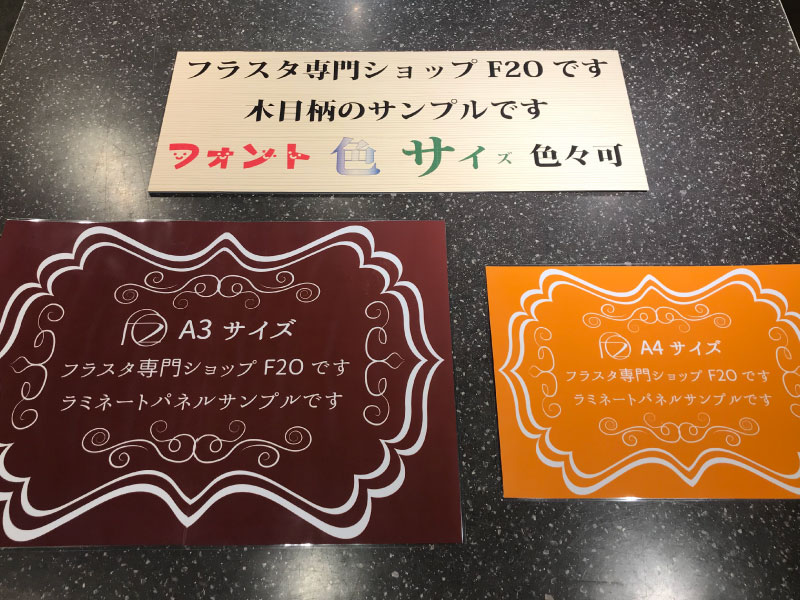 フラスタ専門ショップ F2O です
木目柄のサンプルです
フォント 色 サイズ 色々可
A3 サイズ
フラスタ専門ショップ F2O です
ラミネートパネルサンプルです
A4 サイズ
フラスタ専門ショップ F2O です
ラミネートパネルサンプルです